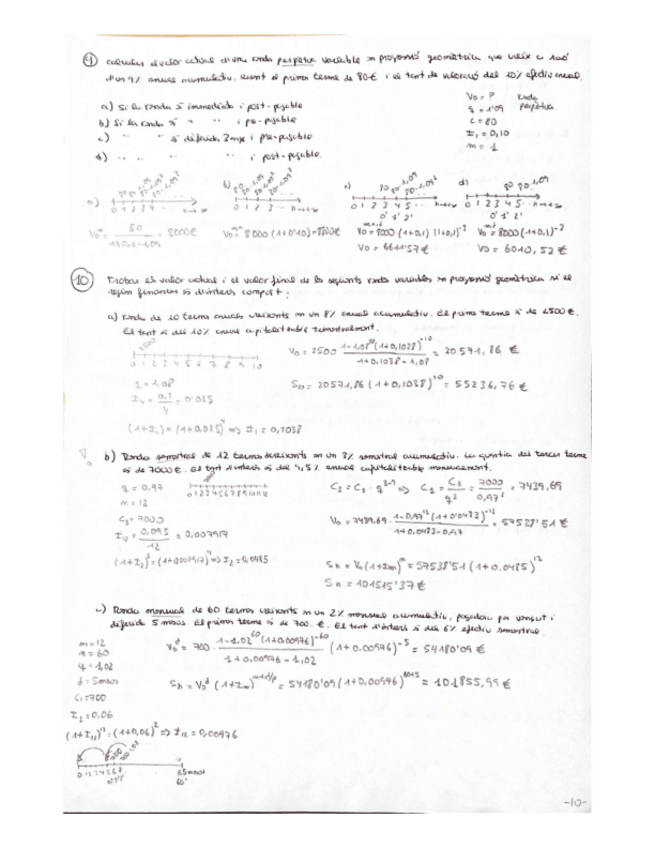 9 Calcular el valor actual d'una renda perpetua variable en progressió geomètrica que creix a raó
d'un 9% anual acumulatiu, essent el primer terme de 80€ i el tant de valoració del 10% efectiu anual.
a) Si la renda és immediata i post-pagable
b) Si la renda és " i pre-pagable
c) " " és diferida 3 anys i pre-pagable
d) " " " i post-pagable.
V0 = ?
q = 1'09
C = 80
I1 = 0,10
m = 1
Renda perpètua
a)
0 1 2 3 4
V0∞ = 80 / 1+0,1-1,09 = 8000€
b)
0 1 2 3
V0∞ = 8000 (1+0'10) = 8800€
c)
0 1 2 3 4 5
0' 1' 2'
V0 = 8000 (1+0,1) (1+0,1)^-3
V0 = 6611'57€
d)
80 80·1,09
0 1 2 3 4 5
0' 1' 2'
V0 = 8000 (1+0,1)^-3
V0 = 6010,52€
10 Trobar el valor actual i el valor final de les següents rendes variables en progressió geomètrica si el
règim financer és d'interès compost:
a) Renda de 10 termes anuals creixents en un 8% anual acumulatiu. El primer terme és de 2500€.
El tant és del 10% anual capitalitzable trimestralment.
2500
0 1 2 3 4 5 6 7 8 9 10
q = 1,08
I4 = 0,1 / 4 = 0'025
(1+I1) = (1+0,025)^4 => I1 = 0,1038
V0 = 2500 · 1-1,08^10 (1+0,1038)^-10 / 1+0,1038-1,08 = 20.571,86 €
S10 = 20571,86 (1+0,1038)^10 = 55236,76 €
b) Renda semestral de 12 termes decreixents en un 3% semestral acumulatiu. La quantia del tercer terme
és de 7000€. El tant d'interès és del 9,5% anual capitalitzable mensualment.
q = 0,97
m = 12
C3 = 7000
I12 = 0,095 / 12 = 0,007917
(1+I2)^2 = (1+0,007917)^12 => I2 = 0,0485
0 1 2 3 4 5 6 7 8 9 10 11 12
C3 = C1 · q^3-1 => C1 = C3 / q² = 7000 / 0,97² = 7439,69
V0 = 7439,69 · 1-0,97^12 (1+0'0485)^-12 / 1+0,0485-0,97 = 57538'51 €
Sn = V0 (1+Im)^n = 57538'51 (1+0,0485)^12
Sn = 101515'37€
c) Renda mensual de 60 termes creixents en un 2% mensual acumulatiu, pagadora per vençut i
diferida 5 mesos. El primer terme és de 700 €. El tant d'interès és del 6% efectiu semestral.
m = 12
n = 60
q = 1,02
d = 5 mesos
C1 = 700
I2 = 0,06
(1+I12)^12 = (1+0,06)^2 => I12 = 0,00976
V0^d = 700 · 1-1,02^60 (1+0,00976)^-60 / 1+0,00976-1,02 (1+0,00976)^-5 = 54180'09 €
Sn = V0^d (1+Im)^n+d/p = 54180'09 (1+0,00976)^60+5 = 101855,99 €
0 1 2 3 4 5 6 7
65 mesos
60'
-10-